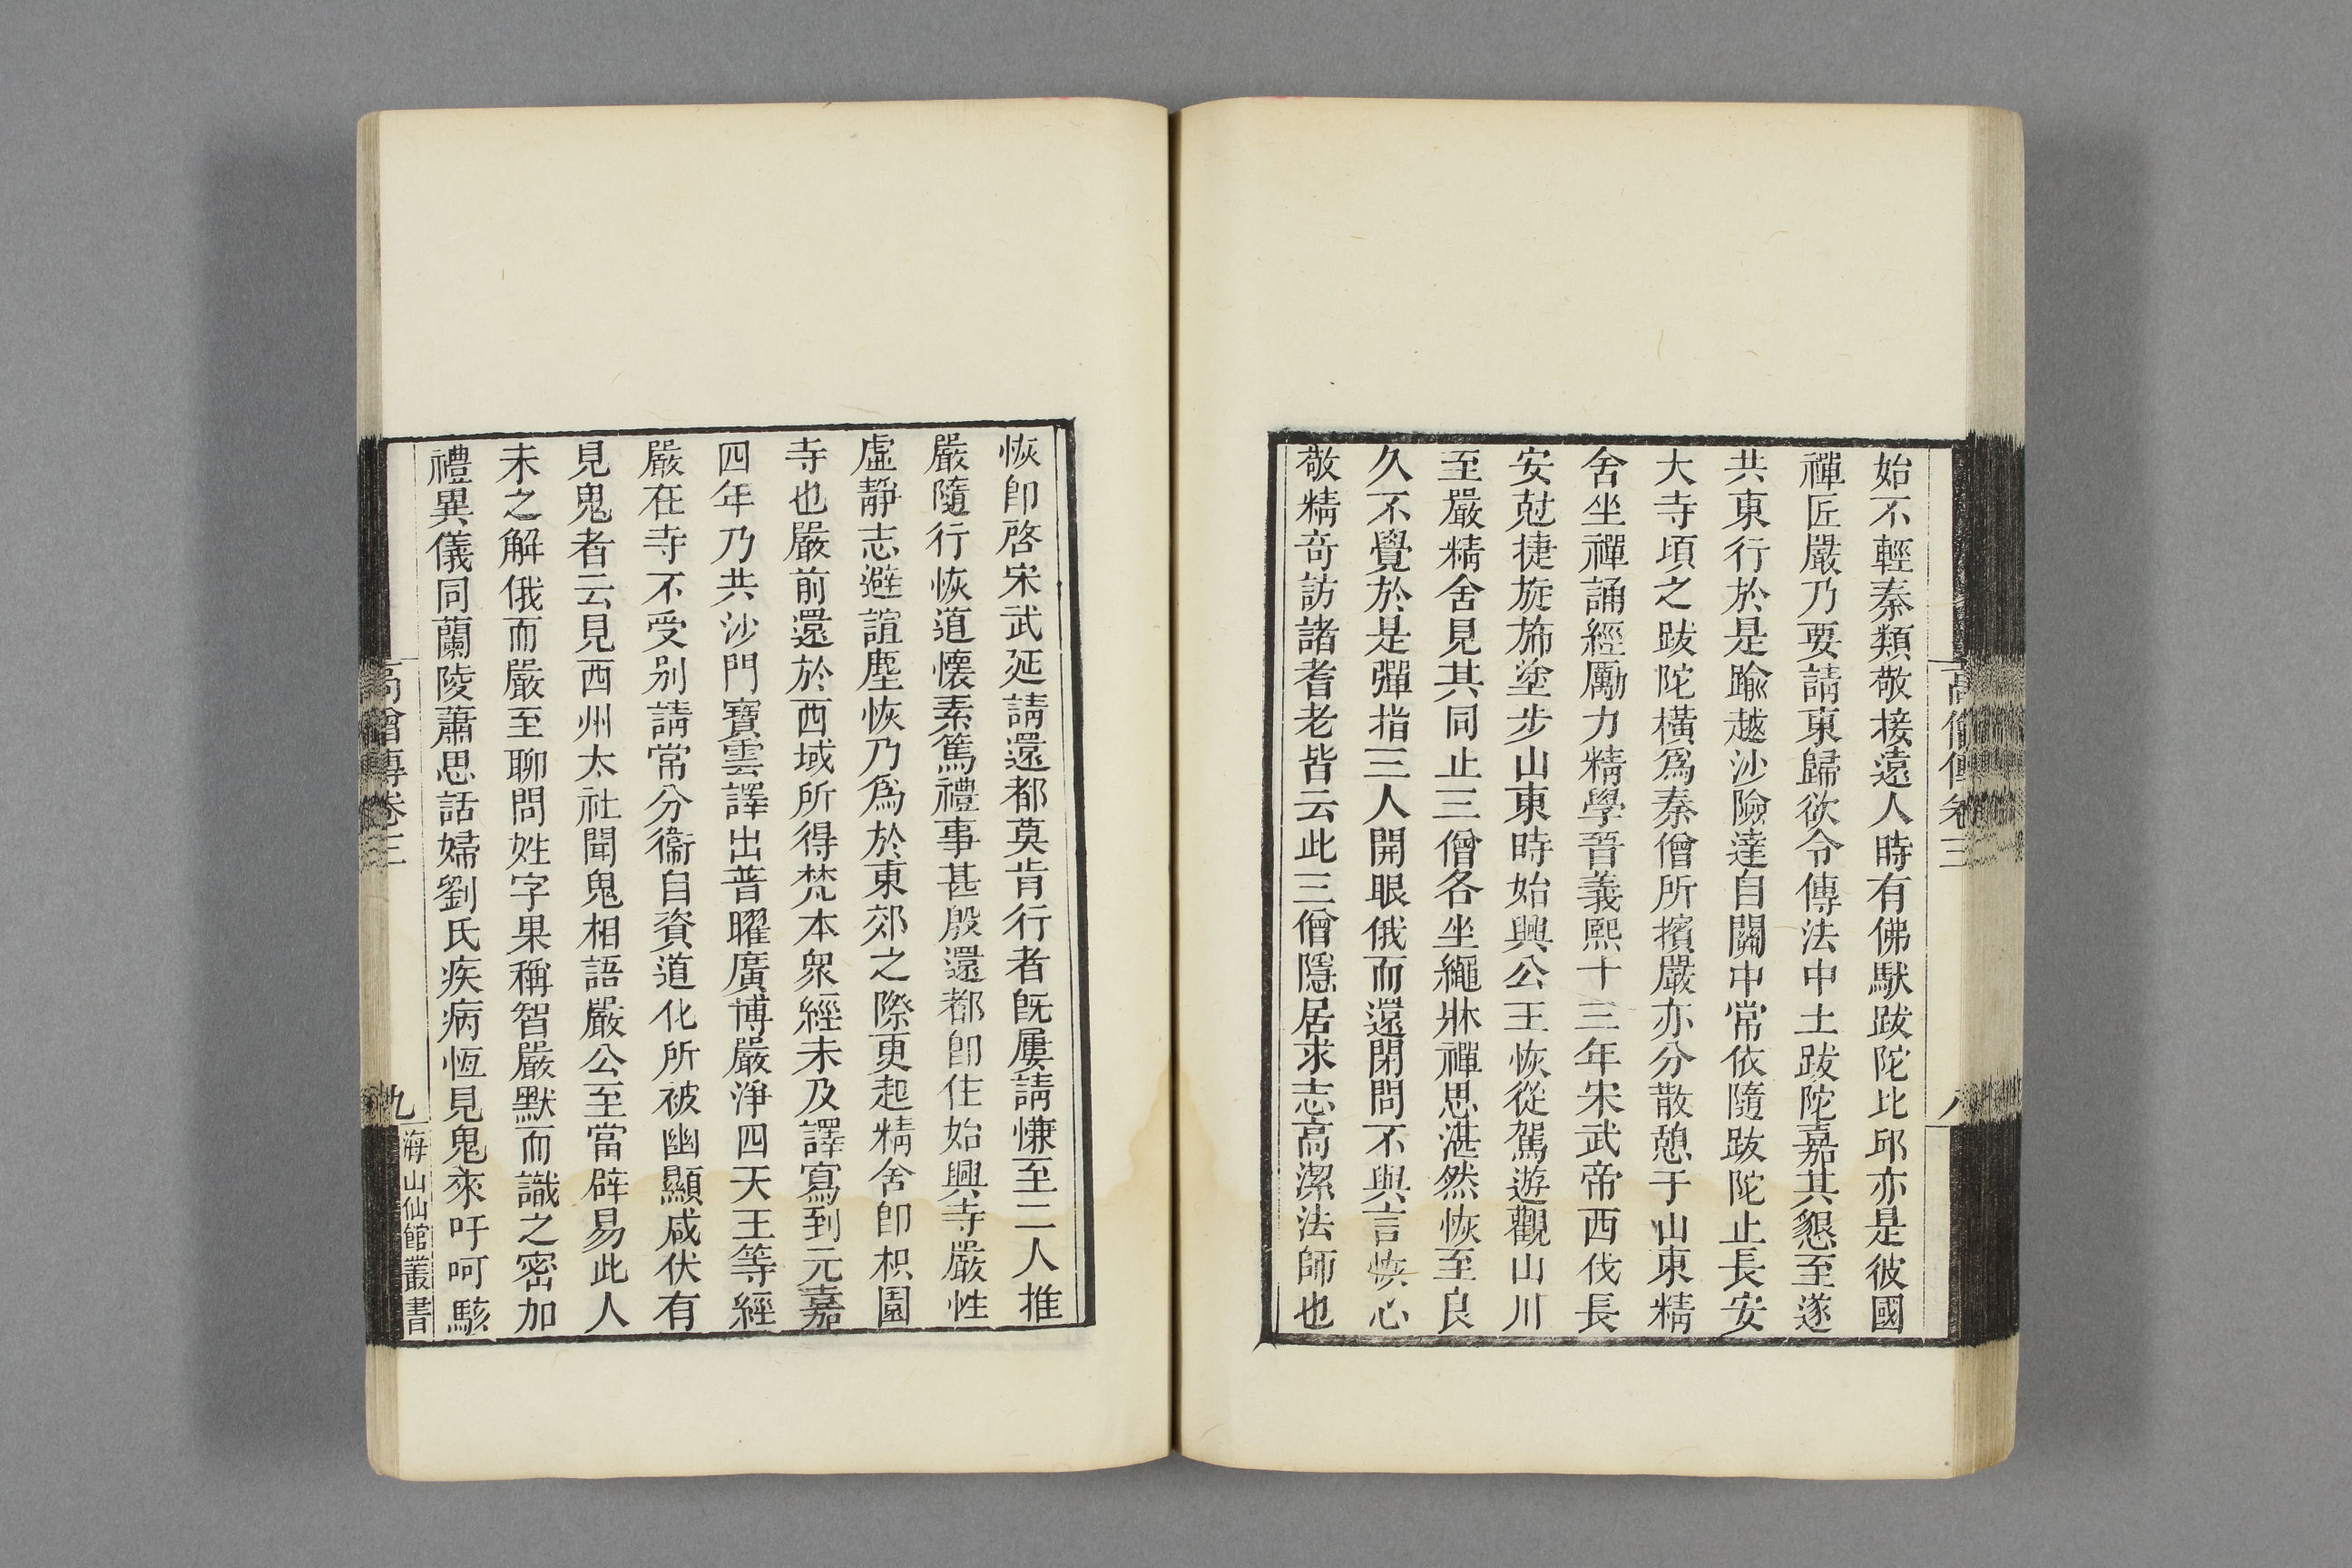 始不輕秦類敬接遠人時有佛馱跋陀比邱亦是彼國
禪匠嚴乃要請東歸欲令傳法中土跋陀嘉其懇至遂
共東行於是踰越沙險達自關中常依隨跋陀止長安
大寺頃之跋陀橫爲秦僧所擯嚴亦分散憩于山東精
舍坐禪誦經勵力精學晉義熙十三年宋武帝西伐長
安尅捷旋斾塗步山東時始興公王恢從駕遊觀山川
至嚴精舍見其同止三僧各坐繩牀禪思湛然恢至良
久不覺於是彈指三人開眼俄而還閉問不與言恢心
敬精奇訪諸耆老皆云此三僧隱居求志高潔法師也
高僧傳卷三
八
恢卽啓宋武延請還都莫肯行者旣屢請慊至二人推
嚴隨行恢道懷素篤禮事甚殷還都卽住始興寺嚴性
虛靜志避諠塵恢乃爲於東郊之際更起精舍卽枳園
寺也嚴前還於西域所得梵本衆經未及譯寫到元嘉
四年乃共沙門寶雲譯出普曜廣博嚴淨四天王等經
嚴在寺不受别請常分衞自資道化所被幽顯咸伏有
見鬼者云見西州太社聞鬼相語嚴公至當辟易此人
未之解俄而嚴至聊問姓字果稱智嚴默而識之密加
禮異儀同蘭陵蕭思話婦劉氏疾病恆見鬼來吁呵駭
高僧傳卷三
九
海山仙館叢書